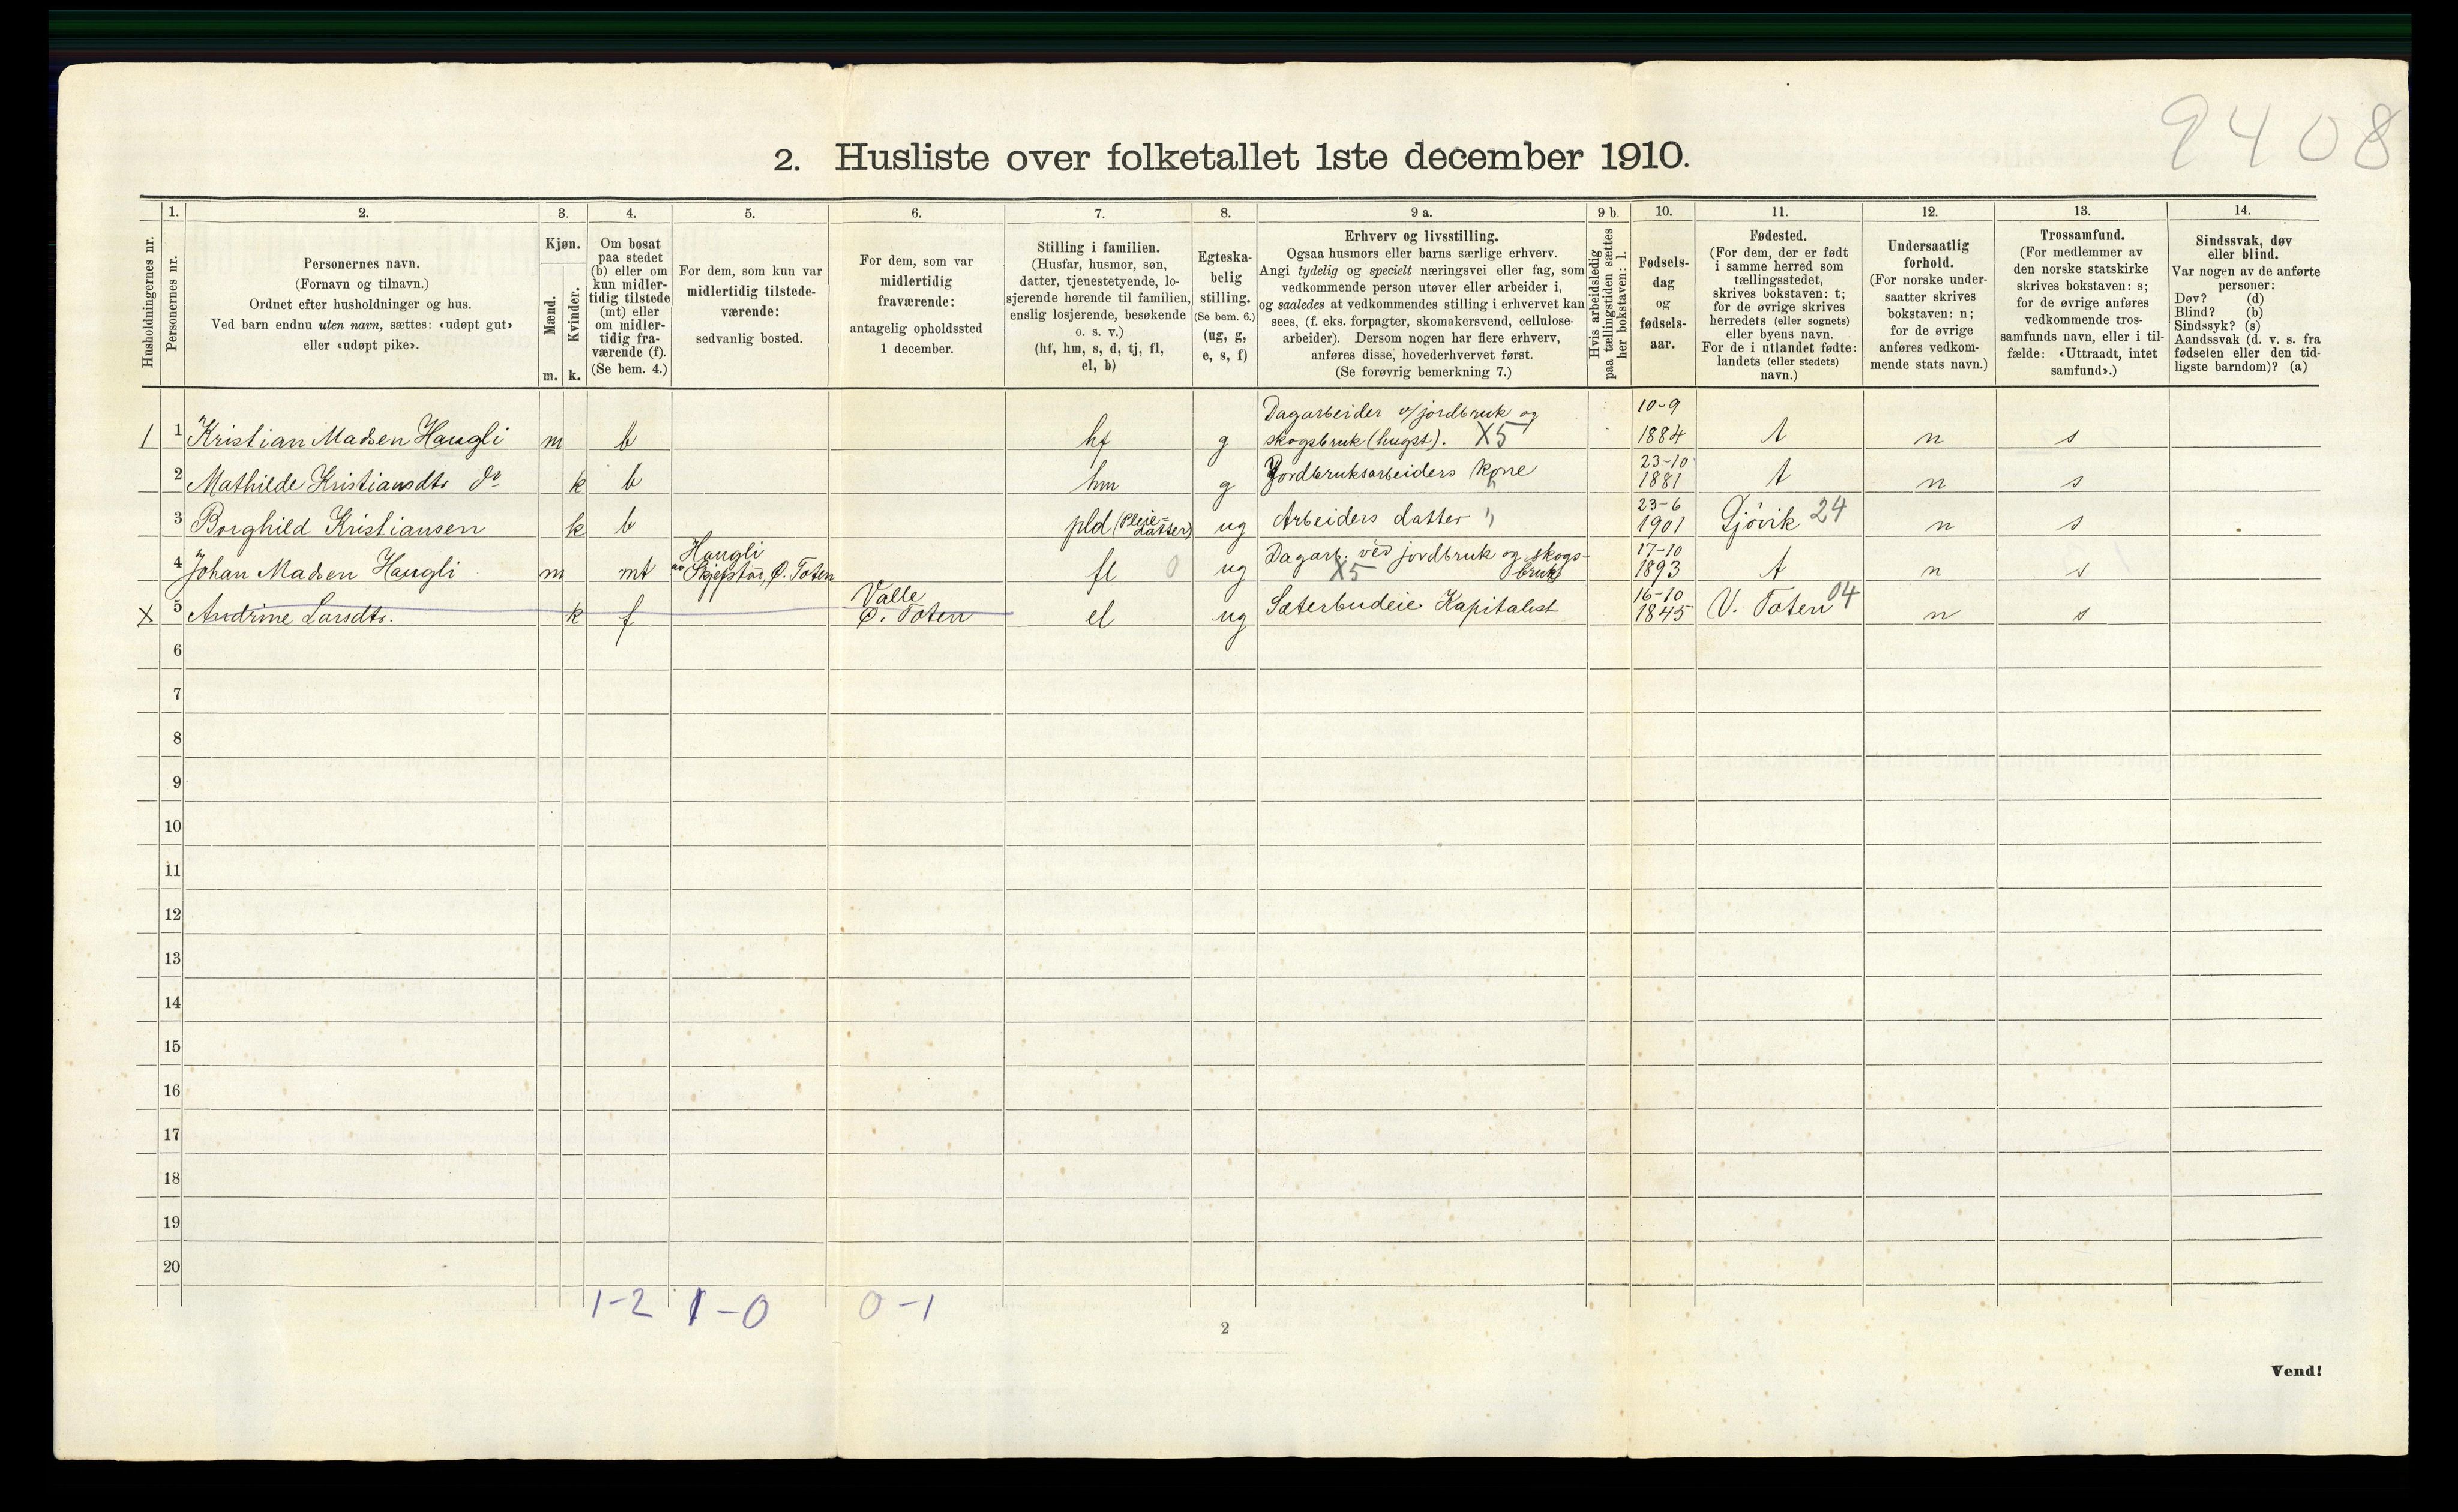 9408
2. Husliste over folketallet 1ste december 1910.
Husholdningernes nr.
1.
Personernes nr.
2.
Personernes navn.
(Fornavn og tilnavn.)
Ordnet efter husholdninger og hus.
Ved barn endnu uten navn, sættes: «udøpt gut»
eller «udøpt pike».
3.
Kjøn.
Mænd.
Kvinder.
m. k.
4.
Om bosat
paa stedet
(b) eller om
kun midler-
tidig tilstede
(mt) eller
om midler-
tidig fra-
værende (f).
(Se bem. 4.)
5.
For dem, som kun var
midlertidig tilstede-
værende:
sedvanlig bosted.
6.
For dem, som var
midlertidig
fraværende:
antagelig opholdssted
1 december.
7.
Stilling i familien.
(Husfar, husmor, søn,
datter, tjenestetyende, lo-
sjerende hørende til familien,
enslig losjerende, besøkende
o. s. v.)
(hf, hm, s, d, tj, fl,
el, b)
8.
Egteska-
belig
stilling.
(Se bem. 6.)
(ug, g,
e, s, f)
9 a.
Erhverv og livsstilling.
Ogsaa husmors eller barns særlige erhverv.
Angi tydelig og specielt næringsvei eller fag, som
vedkommende person utøver eller arbeider i,
og saaledes at vedkommendes stilling i erhvervet kan
sees, (f. eks. forpagter, skomakersvend, cellulose-
arbeider). Dersom nogen har flere erhverv,
anføres disse, hovederhvervet først.
(Se forøvrig bemerkning 7.)
9 b.
Hvis arbeidsledig
paa tællingstiden sættes
her bokstaven: l.
10.
Fødsels-
dag
og
fødsels-
aar.
11.
Fødested.
(For dem, der er født
i samme herred som
tællingsstedet,
skrives bokstaven: t;
for de øvrige skrives
herredets (eller sognets)
eller byens navn.
For de i utlandet fødte:
landets (eller stedets)
navn.)
12.
Undersaatlig
forhold.
(For norske under-
saatter skrives
bokstaven: n;
for de øvrige
anføres vedkom-
mende stats navn.)
13.
Trossamfund.
(For medlemmer av
den norske statskirke
skrives bokstaven: s;
for de øvrige anføres
vedkommende tros-
samfunds navn, eller i til-
fælde: «Uttraadt, intet
samfund».)
14.
Sindssvak, døv
eller blind.
Var nogen av de anførte
personer:
Døv? (d)
Blind? (b)
Sindssyk? (s)
Aandssvak (d. v. s. fra
fødselen eller den tid-
ligste barndom)? (a)
Dagarbeider v/jordbruk og 10-9
1 1 Kristian Madsen Haugli m b hf g skogsbruk (hugst). X5 1884 t n s
23-10
2 Mathilde Kristiansdtr do k b hm g Jordbruksarbeiders kone 1881 t n s
23-6
3 Borghild Kristiansen k b pld (Pleie=datter) ug Arbeiders datter " 1901 Gjøvik 24 n s
Haugli Dagarb. ved jordbruk og skogs- 17-10
4 Johan Madsen Haugli m mt av Skjefstad, Ø. Toten fl 0 ug X5 bruk 1893 t n s
Valle 16-10
X 5 Andrine Larsdtr. k f Ø. Toten el ug Sæterbudeie Kapitalist 1845 V. Toten 04 n s
6
7
8
9
10
11
12
13
14
15
16
17
18
19
20
1-2 1-0 0-1
2
Vend!